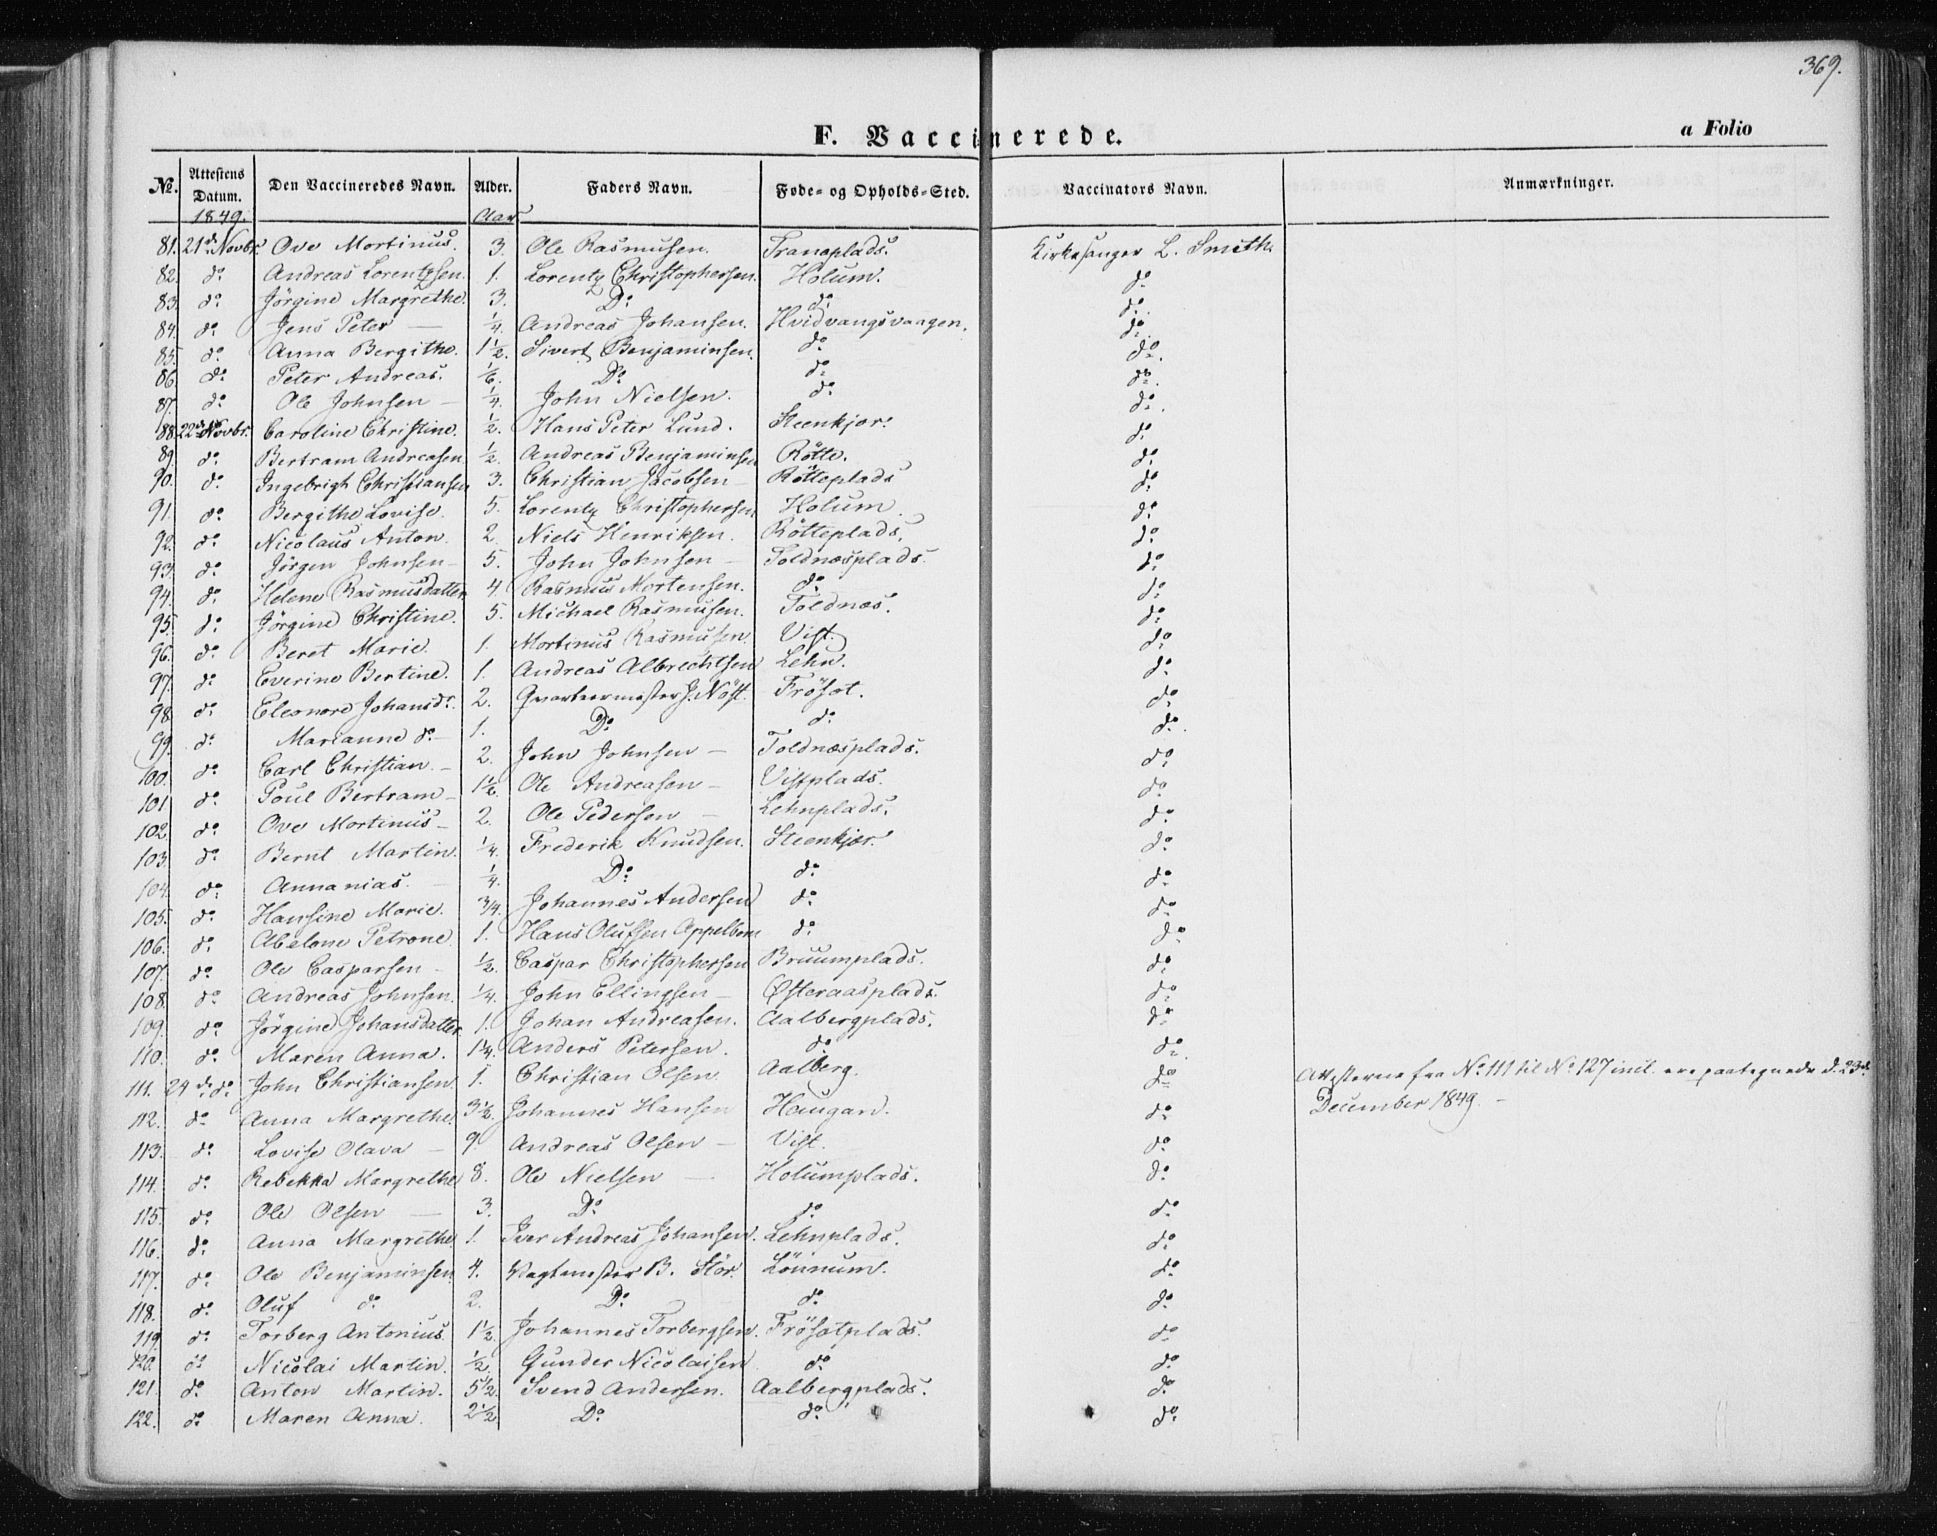 369.
F. Vaccinerede.
a Folio
No. | Attestens Datum. | Den Vaccineredes Navn. | Alder. | Faders Navn. | Føde- og Opholds-Sted. | Vaccinators Navn. | Anmærkninger.
1849. | Aar
81. 21de Novbr. Ove Mortinus. 3. Ole Rasmusen. Tranaplads. Kirkesanger L. Smith.
82. do Andreas Lorentzsen. 1. Lorentz Christophersen. Holum. do
83. do Jörgine Margrethe. 3. Do do do
84. do Jens Peter — 1/4. Andreas Johansen. Hvidvangsvaagen. do
85. do Anna Bergithe. 1 1/2. Sivert Benjaminsen. do do
86. do Peter Andreas. 1/6. Do do do
87. do Ole Johnsen — 1/4. John Nielsen. do do
88. 22de Novbr. Caroline Christine. 1/2. Hans Peter Lund. Steenkjær. do
89. do Bertram Andreasen. 1/2. Andreas Benjaminsen Rötte. do
90. do Ingebrigt Christiansen 3. Christian Jacobsen — Rötteplads do
91. do Bergithe Lovise. 5. Lorentz Christophersen Holum. do
92. do Nicolaus Anton. 2. Niels Henriksen. Rötteplads. do
93. do Jörgen Johnsen — 5. John Johnsen — Toldnæsplads. do
94. do Helene Rasmusdatter 4. Rasmus Mortensen. do do
95. do Jörgine Christine. 5. Michael Rasmusen. Toldnæs. do
96. do Beret Marie. 1. Mortinus Rasmusen. Vist. do
97. do Everine Bertine. 1. Andreas Albrechtsen Lehn. do
98. do Eleonore Johansdr. 2. Qvarteermester J. Nöst. Frösæt. do
99. do Marianne do — 1. Do do do
100. do Carl Christian. — 2. John Johnsen — Toldnæsplads. do
101. do Poul Bertram — 1 1/2. Ole Andreasen — Vistplads. do
102. do Ove Mortinus — 2. Ole Pedersen — Lehnplads. do
103. do Bernt Martin. 1/4. Frederik Knudsen. Steenkjær. do
104. do Annanias. — 1/4. Do do do
105. do Hansine Marie. 3/4. Johannes Andersen do do
106. do Abelone Petrone. 1. Hans Olufsen Appelbom do do
107. do Ole Casparsen — 1/2. Caspar Christophersen Bruumplads. do
108. do Andreas Johnsen. 1/4. John Ellingsen — Østeraasplads. do
109. do Jörgine Johansdatter 1. Johan Andreasen. Aalbergplads. do
110. do Maren Anna. 1 1/4. Anders Petersen. do do
111. 24de do John Christiansen. 1. Christian Olsen Aalberg. do Attesterne fra No 111 til No 127 incl. ere paategnede d. 23de
112. do Anna Margrethe. 3 1/2. Johannes Hansen Haugan. do December 1849. —
113. do Lovise Olava — 9 Andreas Olsen — Vist. do
114. do Rebekka Margrethe 8. Ole Nielsen — Holumplads. do
115. do Ole Olsen — 3. Do do do
116. do Anna Margrethe 1. Iver Andreas Johansen. Lehnplads. do
117. do Ole Benjaminsen 4. Vagtmester B. Stör. Lönnum. do
118. do Oluf do 2. Do do do
119. do Torberg Antonius. 1 1/2. Johannes Torbergsen. Frösætplads. do
120. do Nicolai Martin. 1/2. Gunder Nicolaisen do do
121. do Anton Martin. 5 1/2. Svend Andersen. Aalbergplads. do
122. do Maren Anna. 2 1/2. Do do do